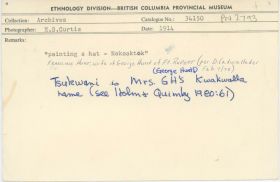 ETHNOLOGY DIVISION—BRITISH COLUMBIA PROVINCIAL MUSEUM
Collection: Archives Catalogue No.: 34150 PN 2793
Photographer: E.S.Curtis Date: 1914
Remarks:
"painting a hat - Nakoaktok"
wife of George Hunt of Ft. Rupert
(George Hunt)
Tsukwani is Mrs. GH'S Kwakwalla
name (see Holm & Quimby 1980:61)